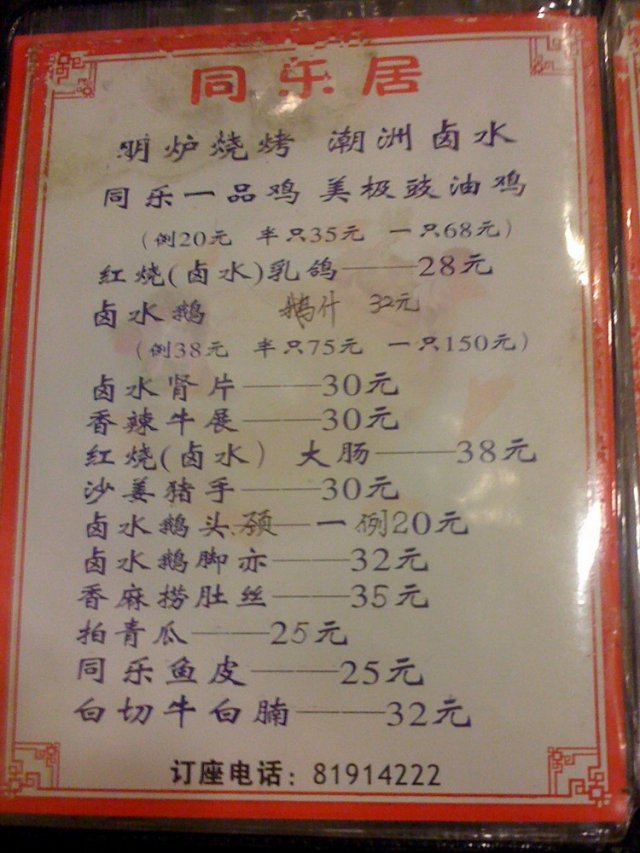 同乐居
明炉烧烤 潮洲卤水
同乐一品鸡 美极豉油鸡
(例20元 半只35元 一只68元)
红烧(卤水)乳鸽——28元
卤水鹅 鹅什 32元
(例38元 半只75元 一只150元)
卤水肾片——30元
香辣牛展——30元
红烧(卤水) 大肠——38元
沙姜猪手——30元
卤水鹅头.颈—一例20元
卤水鹅脚亦——32元
香麻捞肚丝——35元
拍青瓜——25元
同乐鱼皮——25元
白切牛白腩——32元
订座电话：81914222